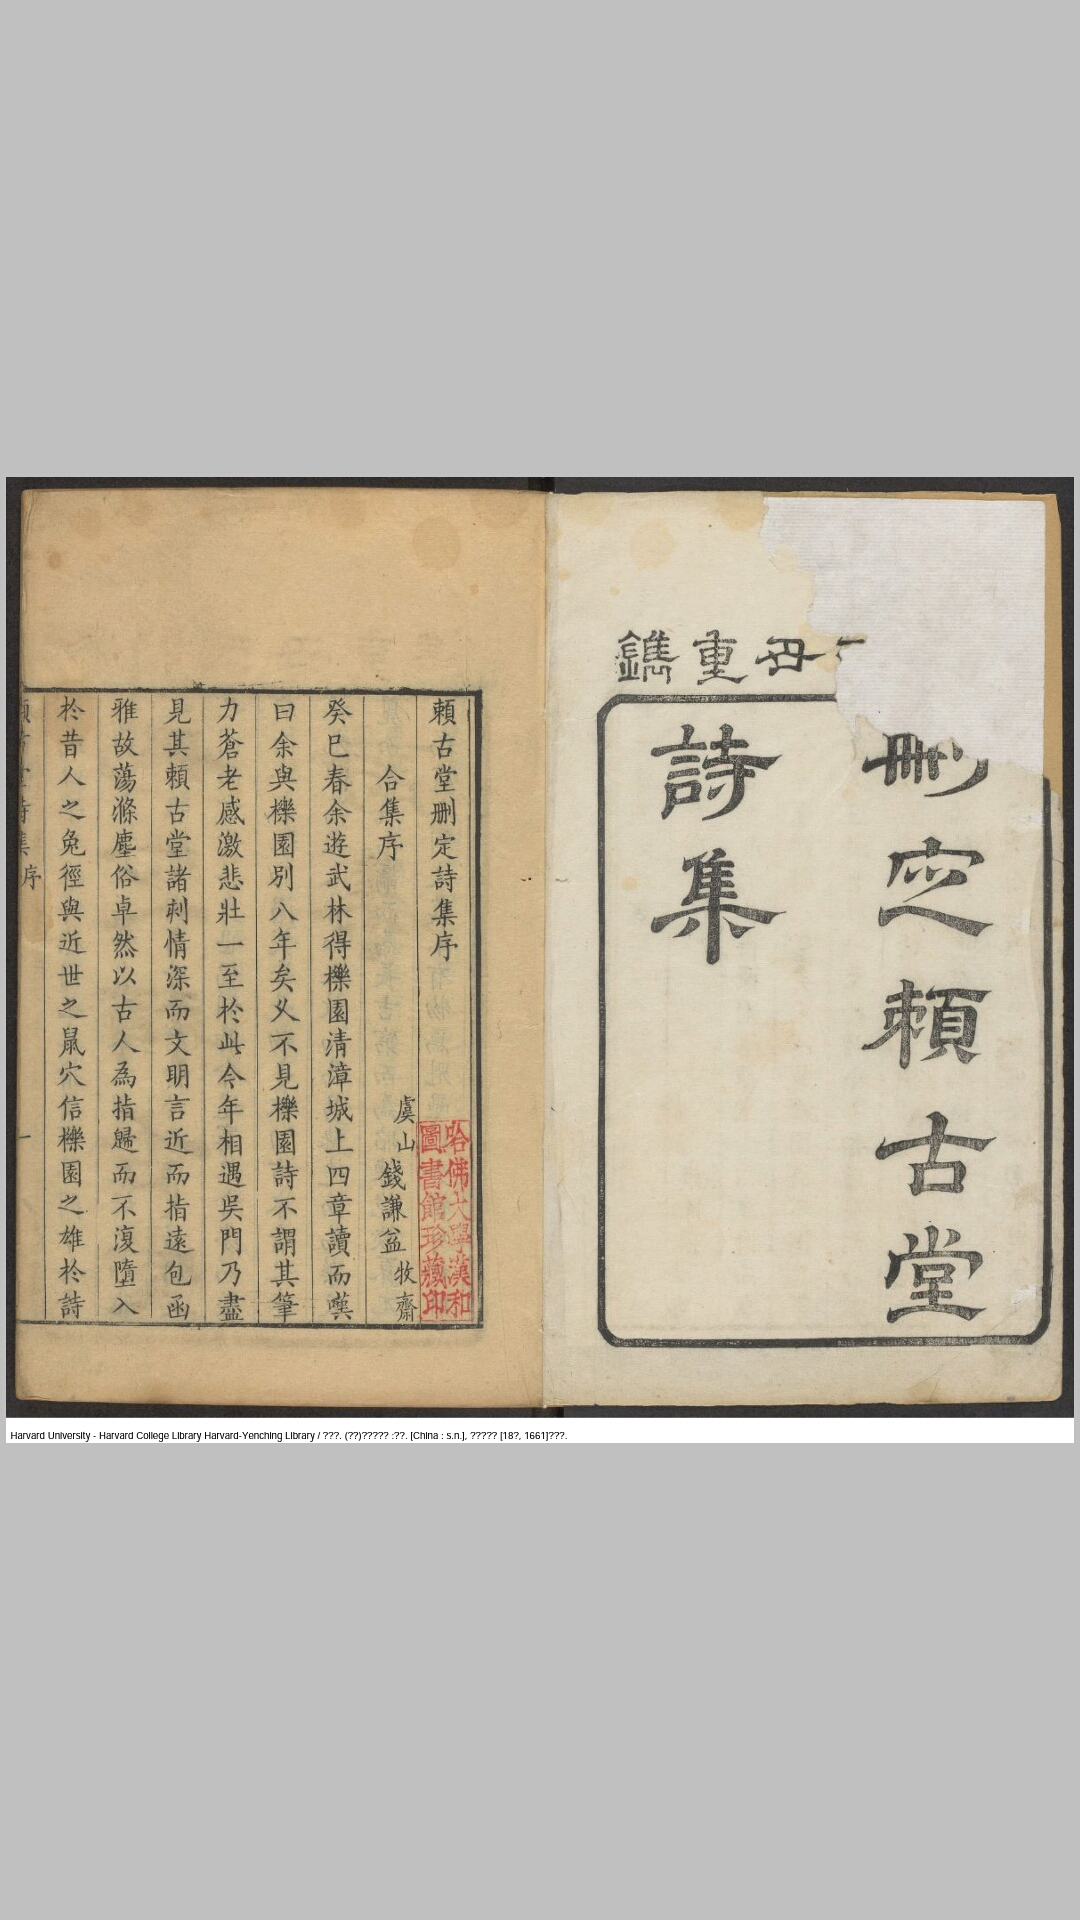 丑重鐫
刪定賴古堂
詩集
賴古堂刪定詩集序
合集序
虞山錢謙益牧齋
癸巳春余遊武林得櫟園清漳城上四章讀而嘆
曰余與櫟園別八年矣乂不見櫟園詩不謂其筆
力蒼老感激悲壯一至於此今年相遇吳門乃盡
見其賴古堂諸刻情深而文明言近而指遠包函
雅故蕩滌塵俗卓然以古人為指歸而不復墮入
於昔人之兔徑與近世之鼠穴信櫟園之雄於詩
序
一
哈佛大學漢和
圖書館珍藏印
Harvard University - Harvard College Library Harvard-Yenching Library / ???. (??)????? :??. [China : s.n.], ????? [18?, 1661]???.